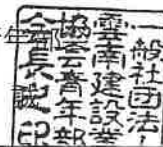 一般社団法人
雲南建設業
協会青年部
会長之印
誠